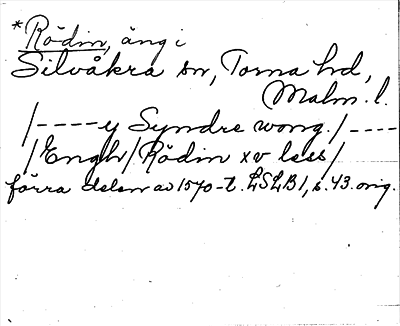 *Rödin, äng i
Silvåkra sn, Torna hd,
Malm. l.
/----y Syndre wong./----
/Engh/Rödin xv less/
förra delen av 1570-t. LSLB1, s. 43. orig.